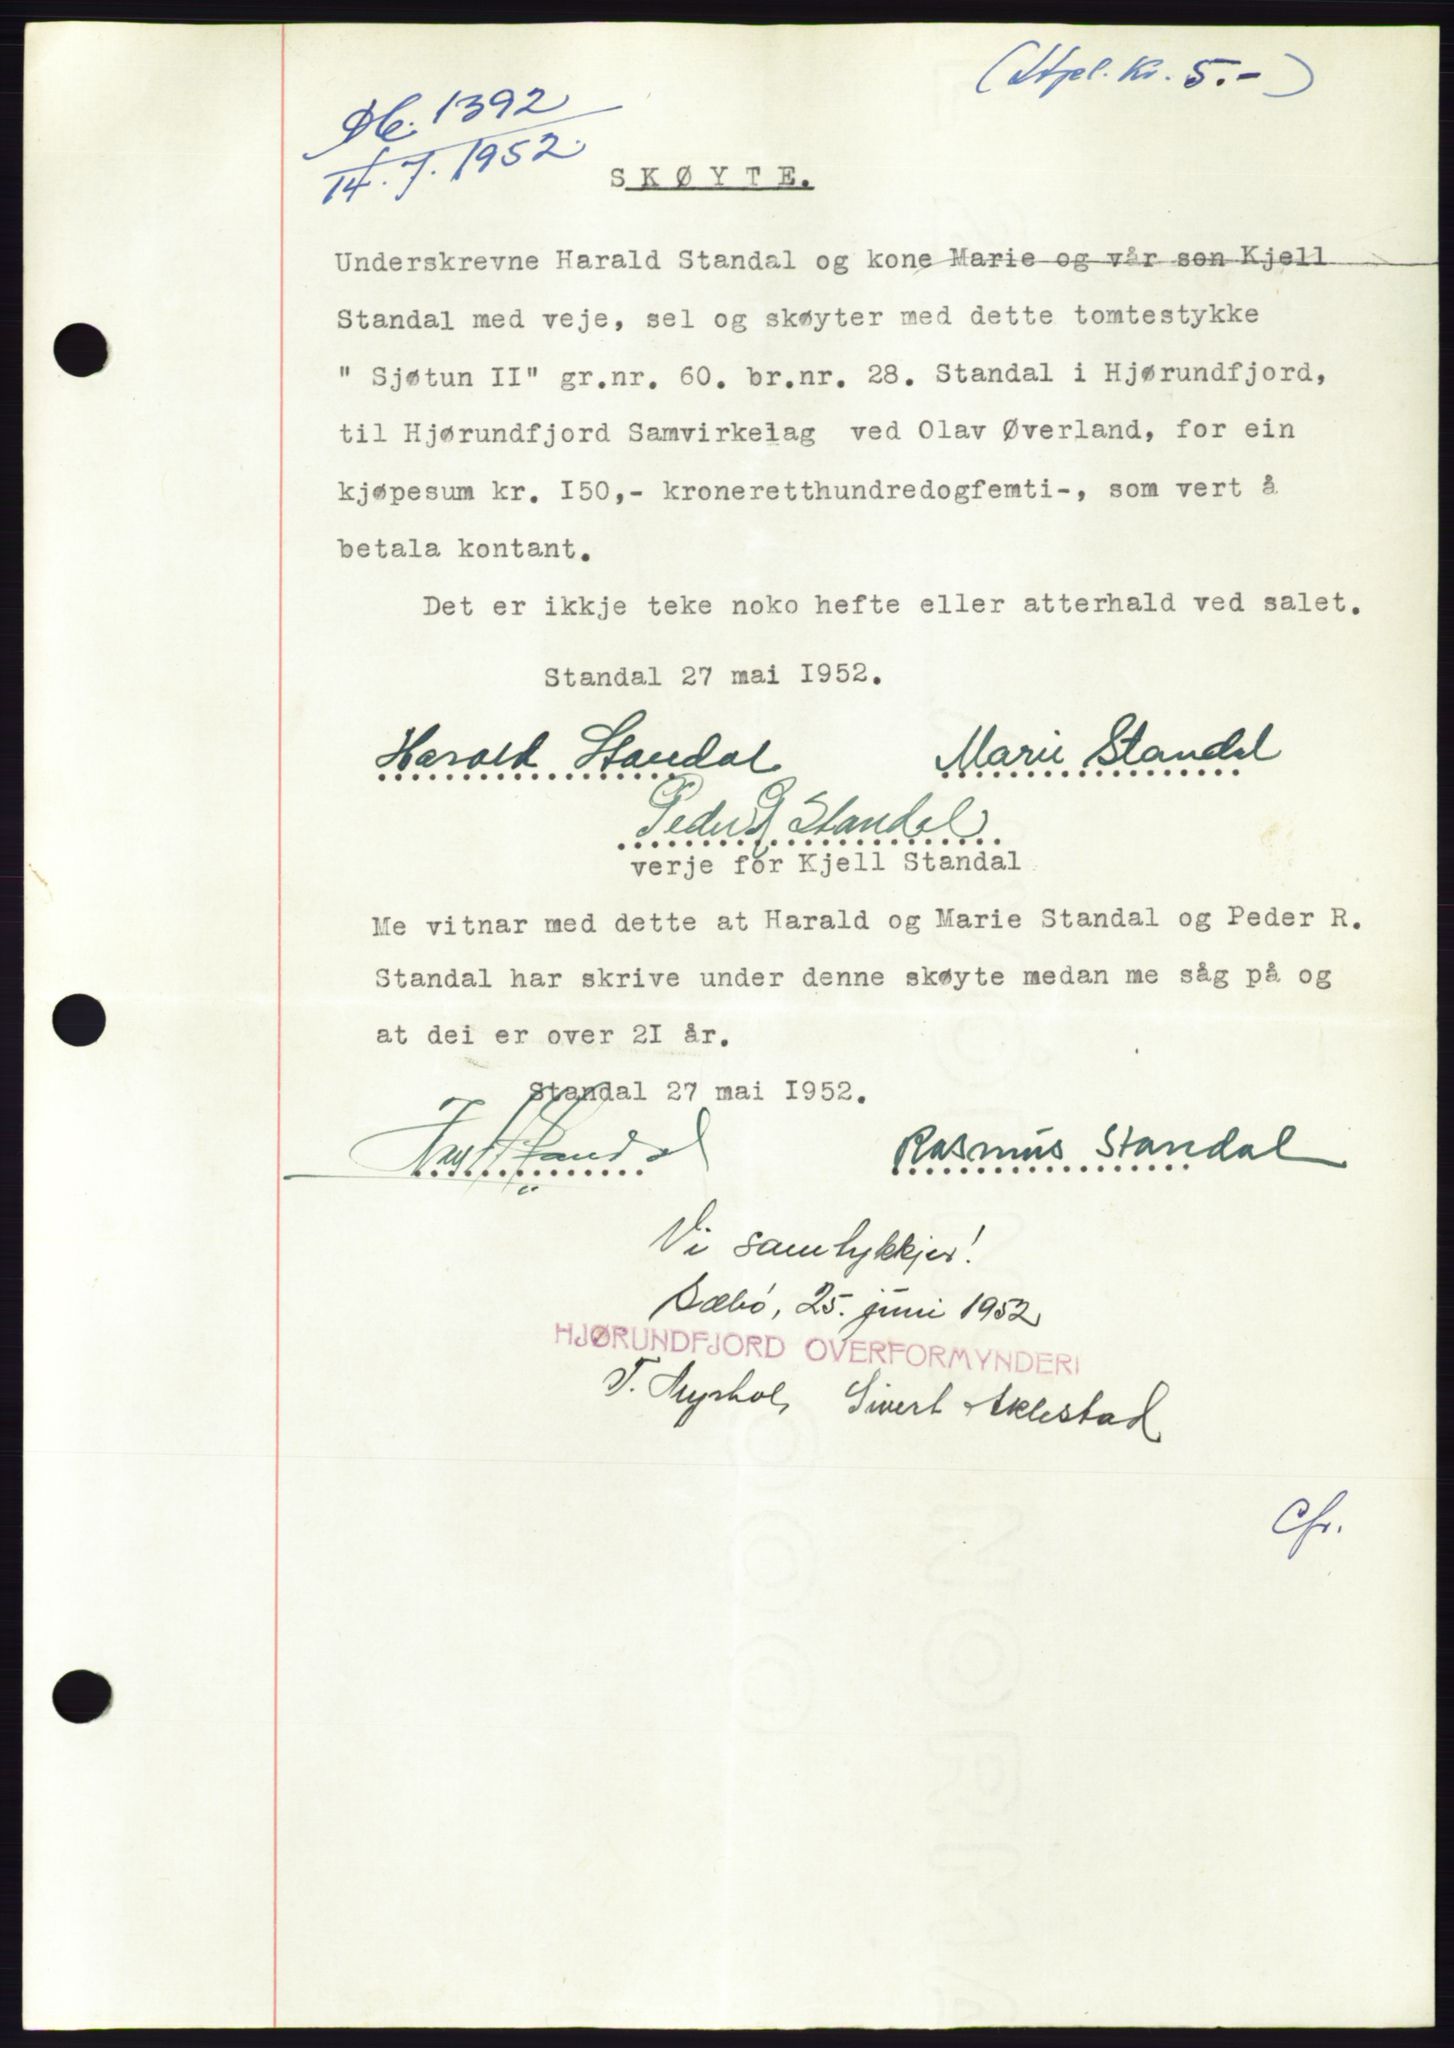 (Stpl. kr. 5.-)
Db. 1392
14.7.1952.
SKØYTE.
Underskrevne Harald Standal og kone Marie og vår son Kjell
Standal med veje, sel og skøyter med dette tomtestykke
" Sjøtun II" gr.nr. 60. br.nr. 28. Standal i Hjørundfjord,
til Hjørundfjord Samvirkelag ved Olav Øverland, for ein
kjøpesum kr. I50,- kroneretthundredogfemti-, som vert å
betala kontant.
Det er ikkje teke noko hefte eller atterhald ved salet.
Standal 27 mai I952.
Harald Standal Marie Standal
Peder R Standal
verje for Kjell Standal
Me vitnar med dette at Harald og Marie Standal og Peder R.
Standal har skrive under denne skøyte medan me såg på og
at dei er over 2I år.
Standal 27 mai I952.
Standal Rasmus Standal
Vi samtykkjer!
Sæbø, 25. juni 1952
HJØRUNDFJORD OVERFORMYNDERI
T. Myrhol, Sivert Aklestad
Cfr.